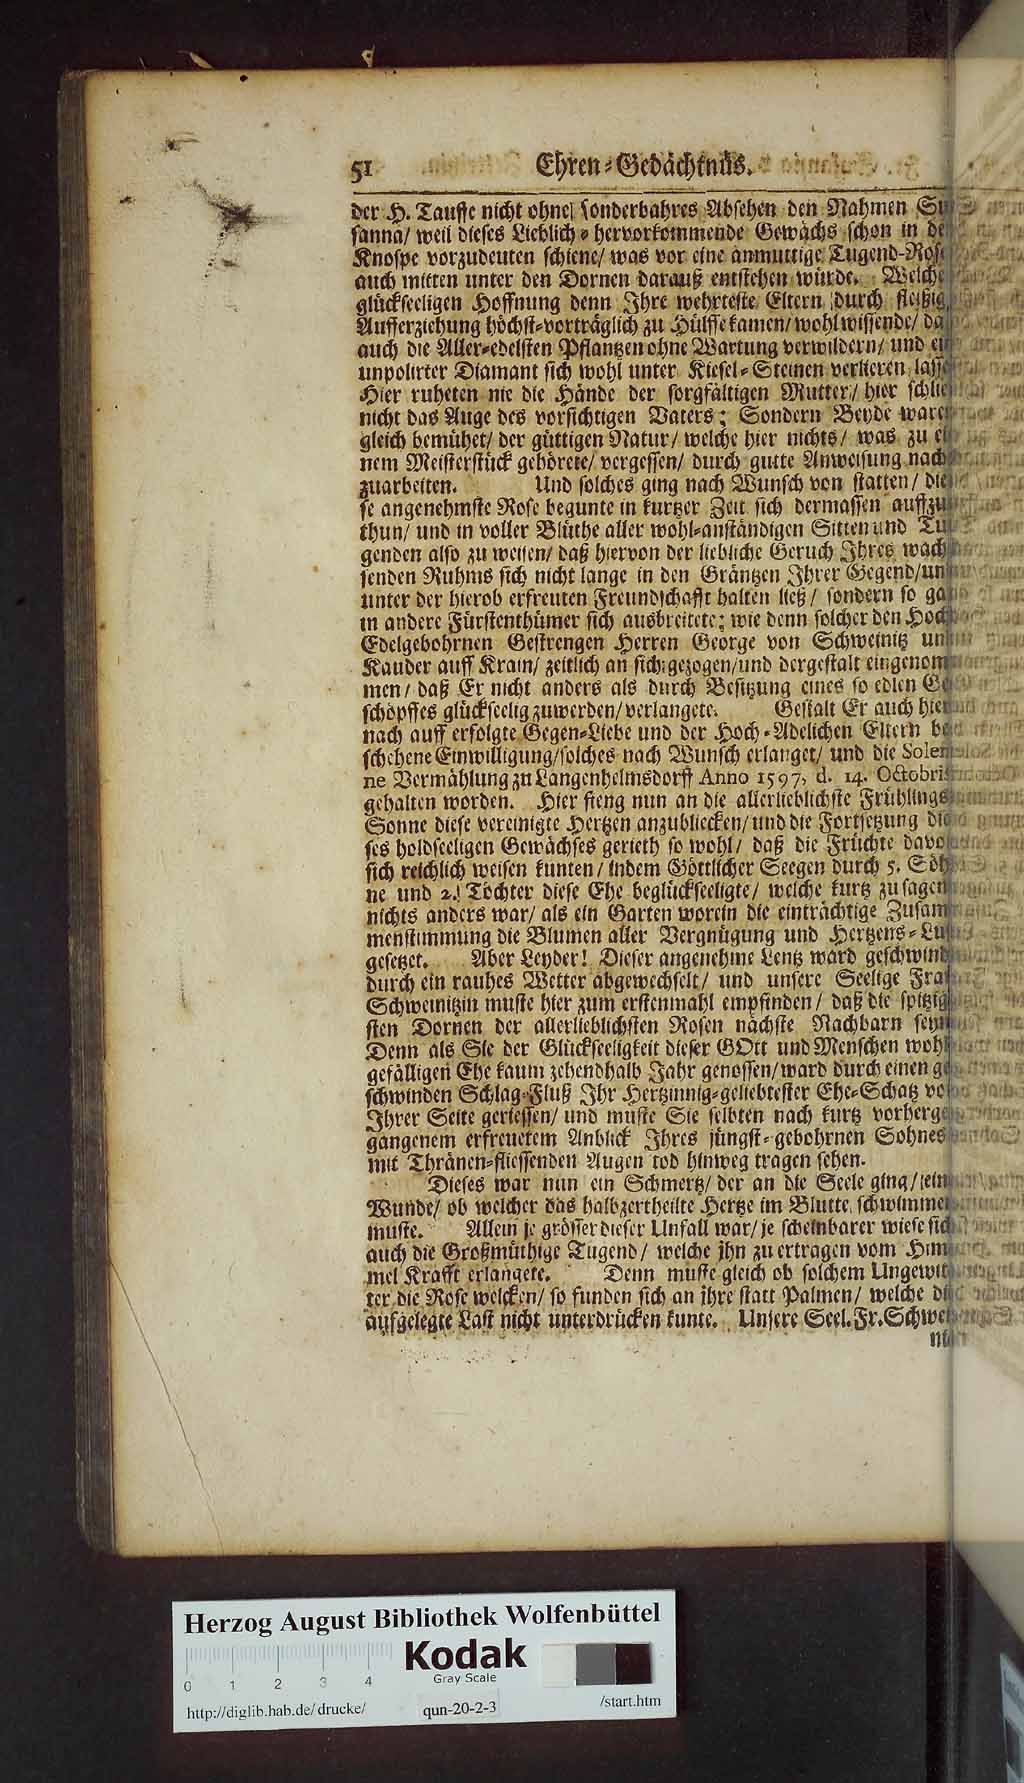 51 Ehren-Gedächtnüs.
der H. Tauffe nicht ohne sonderbahres Absehen den Nahmen Su
sanna/ weil dieses Lieblich-hervorkommende Gewächs schon in de
Knospe vorzudeuten schiene/ was vor eine anmuttige Tugend-Rose
auch mitten unter den Dornen darauß entstehen würde. Welche
glückseeligen Hoffnung denn Ihre wehrteste Eltern durch fleißig
Aufferziehung höchst-vorträglich zu Hülffe kamen/ wohl wissende/ da
auch die Aller-edelsten Pflantzen ohne Wartung verwildern/ und ei
unpolirter Diamant sich wohl unter Kiesel-Steinen verlieren lasse
Hier ruheten nie die Hände der sorgfältigen Mutter/ hier schlie
nicht das Auge des vorsichtigen Vaters; Sondern Beyde ware
gleich bemühet/ der güttigen Natur/ welche hier nichts/ was zu ei
nem Meisterstück gehörete/ vergessen/ durch gutte Anweisung nach
zuarbeiten. Und solches ging nach Wunsch von statten/ die
se angenehmste Rose begunte in kurtzer Zeit sich dermassen auffzu
thun/ und in voller Blüthe aller wohl-anständigen Sitten und Tu
genden also zu weisen/ daß hiervon der liebliche Geruch Ihres wach
senden Ruhms sich nicht lange in den Gräntzen Ihrer Gegend/ un
unter der hierob erfreuten Freundschafft halten ließ/ sondern so ga
in andere Fürstenthümer sich ausbreitete; wie denn solcher den Hoch
Edelgebohrnen Gestrengen Herren George von Schweinitz un
Kauder auff Krain/ zeitlich an sich gezogen/ und dergestalt eingenom
men/ daß Er nicht anders als durch Besitzung eines so edlen Ge
schöpffes glückseelig zuwerden/ verlangete. Gestalt Er auch hier
nach auff erfolgte Gegen-Liebe und der Hoch-Adelichen Eltern be
schehene Einwilligung/ solches nach Wunsch erlanget/ und die Solen
ne Vermählung zu Langenhelmsdorff Anno 1597, d. 14. Octobris
gehalten worden. Hier fieng nun an die allerlieblichste Frühlings
Sonne diese vereinigte Hertzen anzubliecken/ und die Fortsetzung die
ses holdseeligen Gewächses gerieth so wohl/ daß die Früchte davo
sich reichlich weisen kunten/ indem Göttlicher Seegen durch 5. Söh
ne und 2. Töchter diese Ehe beglückseeligte/ welche kurtz zu sagen
nichts anders war/ als ein Garten worein die einträchtige Zusam
menstimmung die Blumen aller Vergnügung und Hertzens-Lus
gesetzet. Aber Leyder! Dieser angenehme Lentz ward geschwind
durch ein rauhes Wetter abgewechselt/ und unsere Seelige Fra
Schweinitzin muste hier zum erstenmahl empfinden/ daß die spitzig
sten Dornen der allerlieblichsten Rosen nächste Nachbarn seyn
Denn als Sie der Glückseeligkeit dieser GOtt und Menschen wohl
gefälligen Ehe kaum zehendhalb Jahr genossen/ ward durch einen ge
schwinden Schlag-Fluß Ihr Hertzinnig-geliebtester Ehe-Schatz vo
Ihrer Seite gerissen/ und muste Sie selbten nach kurtz vorherge
gangenem erfreuetem Anblick Ihres jüngst-gebohrnen Sohnes
mit Thränen-fliessenden Augen tod hinweg tragen sehen.
Dieses war nun ein Schmertz/ der an die Seele ging/ ein
Wunde/ ob welcher das halbzertheilte Hertze im Blutte schwimmen
muste. Allein je grösser dieser Unfall war/ je scheinbarer wiese sich
auch die Großmüthige Tugend/ welche jhn zu ertragen vom Him
mel Krafft erlangete. Denn muste gleich ob solchem Ungewit
ter die Rose welcken/ so funden sich an jhre statt Palmen/ welche di
aufgelegte Last nicht unterdrücken kunte. Unsere Seel. Fr. Schwei
Herzog August Bibliothek Wolfenbüttel
Kodak
Gray Scale
0 1 2 3 4
http://diglib.hab.de/drucke/ qun-20-2-3 /start.htm